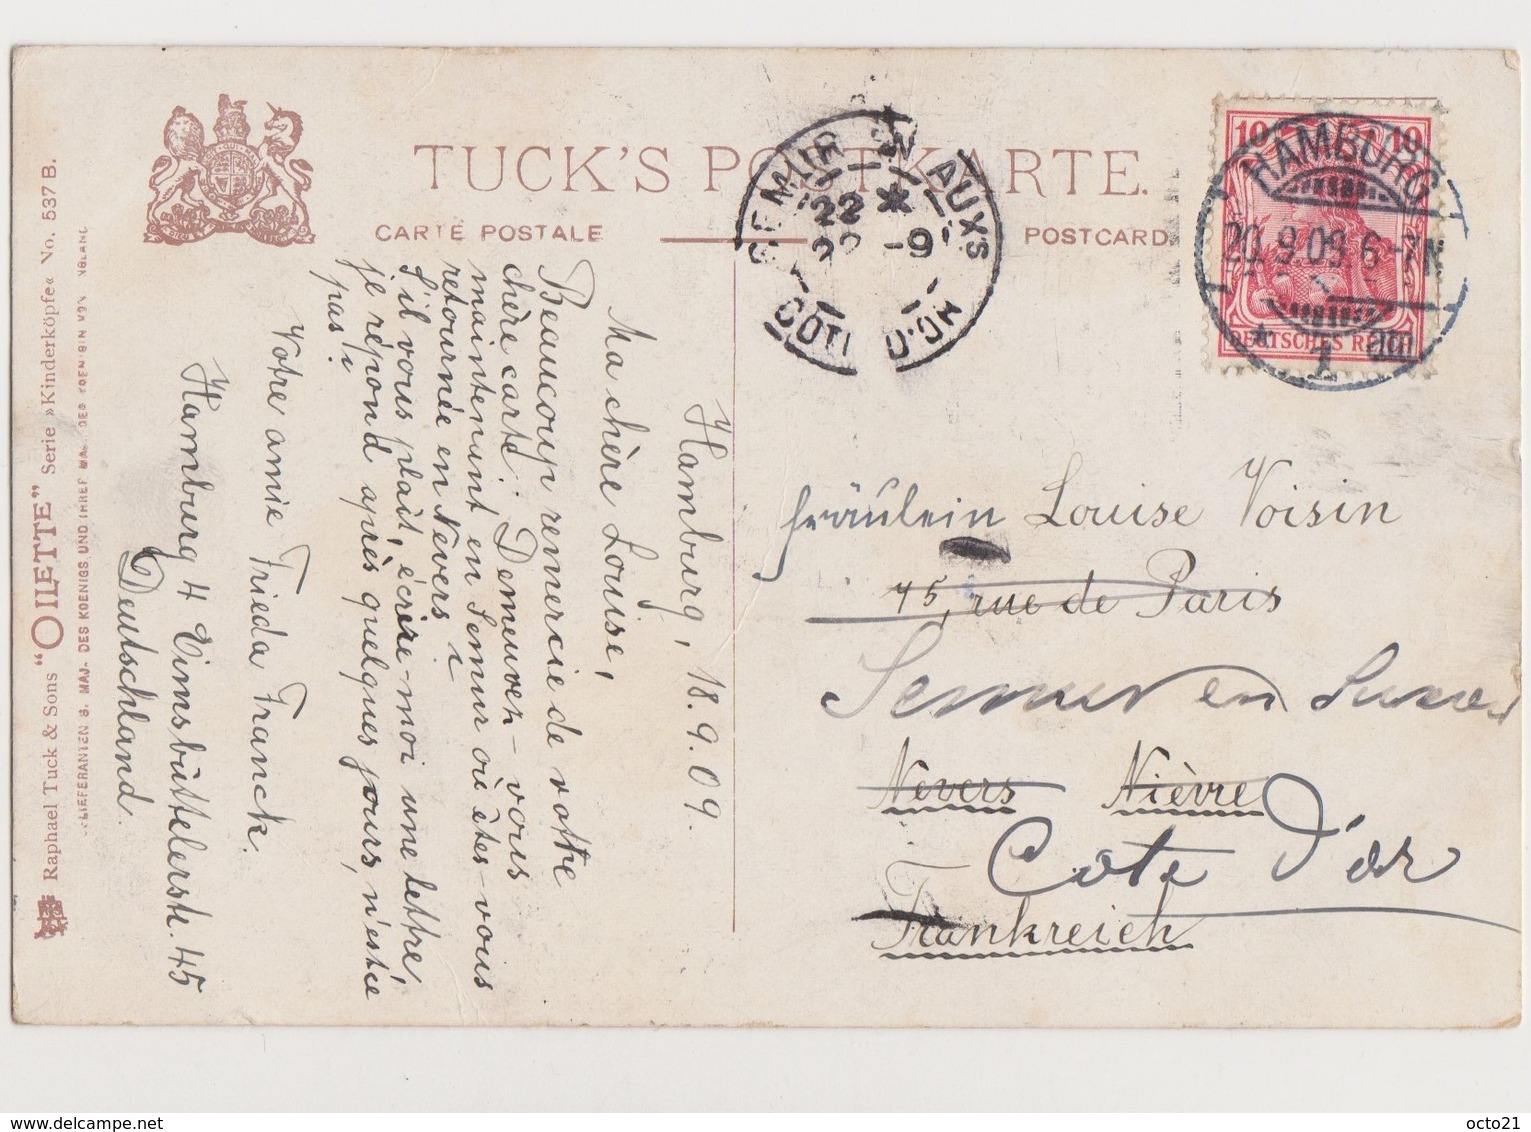 TUCK'S POSTKARTE.
CARTE POSTALE
POSTCARD
Raphael Tuck & Sons "OILETTE" Serie »Kinderköpfe« No. 537 B.
LIEFERANTEN S. MAJ. DES KOENIGS UND IHRER MAJ. DER KOENIGIN VON
SEMUR EN AUXS
22 *
22 -9
COTE D'OR
10 10
DEUTSCHES REICH
HAMBURG
20.9.09 6-7N
* 1
Hamburg, 18.9.09.
Ma chère Louise,
Beaucoup remercie de votre
chère carte. Demeuvez-vous
maintenant en Semur où êtes-vous
retournée en Nevers?
S'il vous plaît, écrire-moi une lettre,
je répond après quelques jours, n'estce
pas?
Votre amie Frieda Franck.
Hamburg 4 Eimsbüttelerstr. 45
Deutschland.
Fräulein Louise Voisin
75, rue de Paris
Semur en Auxois
Nevers Nièvre
Cote d'or
Frankreich
octo21